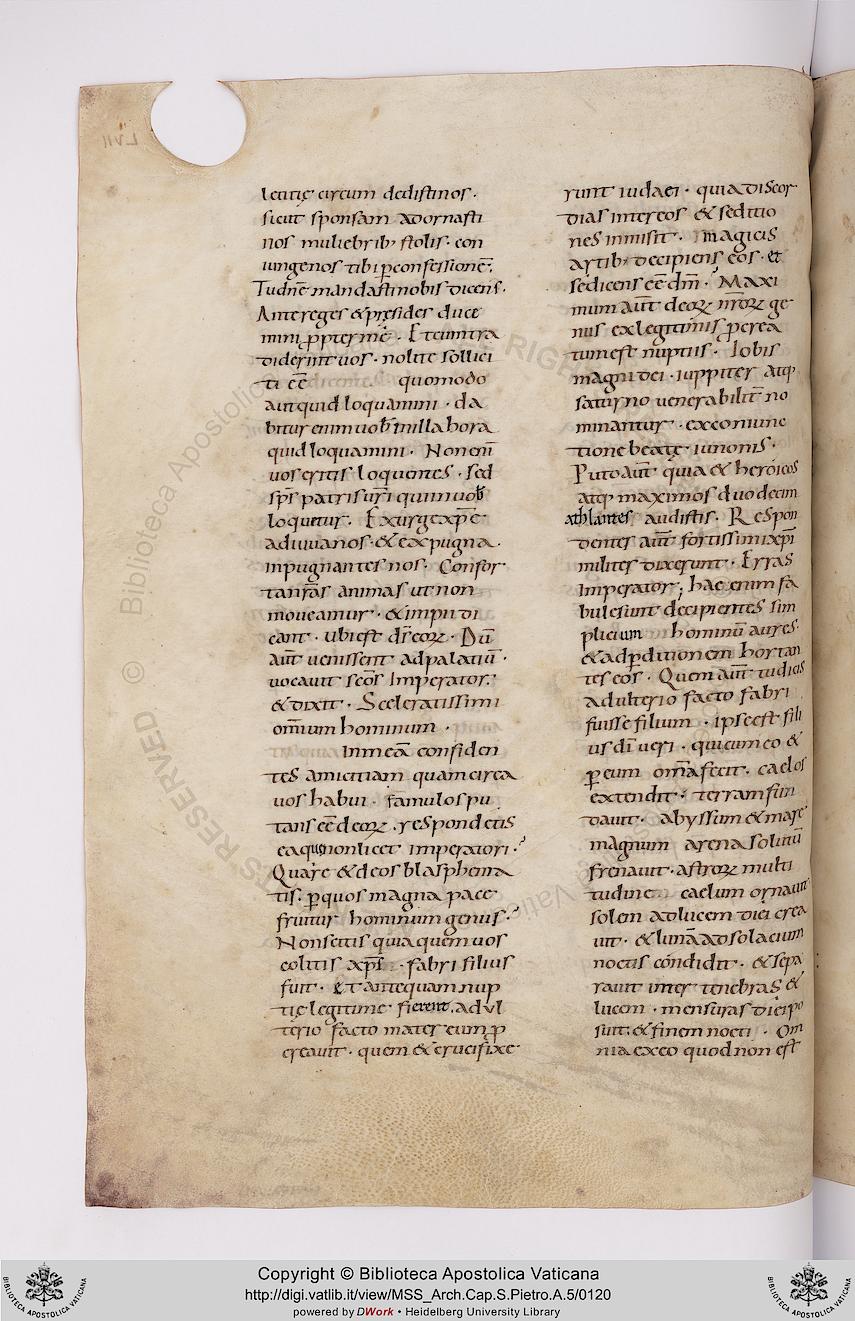 letitię circum dedisti nos·
sicut sponsam adornasti
nos muliebrib; stolis· con
iungenos tibi ꝑ confessionē;
Tu dn̄e mandasti nobis dicens·
Ante reges & pręsides duce
mini ꝓpter mē· Et cum tra
diderint uos· nolite sollici
ti eē quomodo
aut quid loquamini· da
bitur enim uob̄ in illa hora
quid loquamini· Non enī
uos estis loquentes· sed
sp̄s patris ur̄i qui in uob̄
loquitur· Exurge xp̄e
adiuua nos· & expugna·
inpugnantes nos· Confor
ta nr̄as animas ut non
moueamur· & impii di
cant· ubi est dr̄ eoꝝ· Dū
aūt uenissent ad palatiū·
uocauit sc̄os Imperator·
& dixit· Sceleratissimi
om̄ium hominum·
In meā confiden
tes amicitiam quam circa
uos habui· famulos pu
tans eē deoꝝ· respondetis
ea quę non licet imperatori·
Quare & deos blasphema
tis· ꝑ quos magna pace
fruitur hominum genus·
Nonscitis quia quem uos
colitis xp̄s· fabri filius
fuit· et antequam nup
tię legitime fierent, adul
terio facto mater eum ꝓ
creauit· quem & crucifixe
runt iudaei· quia discor
dias inter eos & seditio
nes inmisit· magicis
artib; decipiens eos· et
se dicens eē dm̄· Maxi
mum aūt deoꝝ nr̄oꝝ ge
nus ex legitimis ꝓcrea
tum est nuptiis· Iobis
magni dei· iuppiter atq;
saturno uenerabilit̄ no
minantur· ex coniunc
tione beatę iunonis·
Puto aūt quia & heroicos
atq; maximos duodecim
athlantes audistis· Respon
dentes aūt fortissimi xp̄i
milites dixerunt· Erras
Imperator; haec enim fa
bulę sunt decipientes sim
plicium hominū aures·
& ad ꝑditionem hortan
tes eos· Quem aūt tu dicis
adulterio facto fabri
fuisse filium· ipse est fili
us dī ueri· qui cum eo &
ꝑ eum om̄a fecit· caelos
extendit· terram fun
dauit· abyssum & mare
magnum arena solitū
frenauit· astroꝝ multi
tudine caelum ornauit
solem ad lucem diei crea
uit· & lunā ad solacium
noctis condidit· & sepa
rauit inter tenebras &
lucem· mensuras diei po
suit· & finem nocti· Om
nia ex eo quod non est
Copyright © Biblioteca Apostolica Vaticana
http://digi.vatlib.it/view/MSS_Arch.Cap.S.Pietro.A.5/0120
powered by DWork • Heidelberg University Library